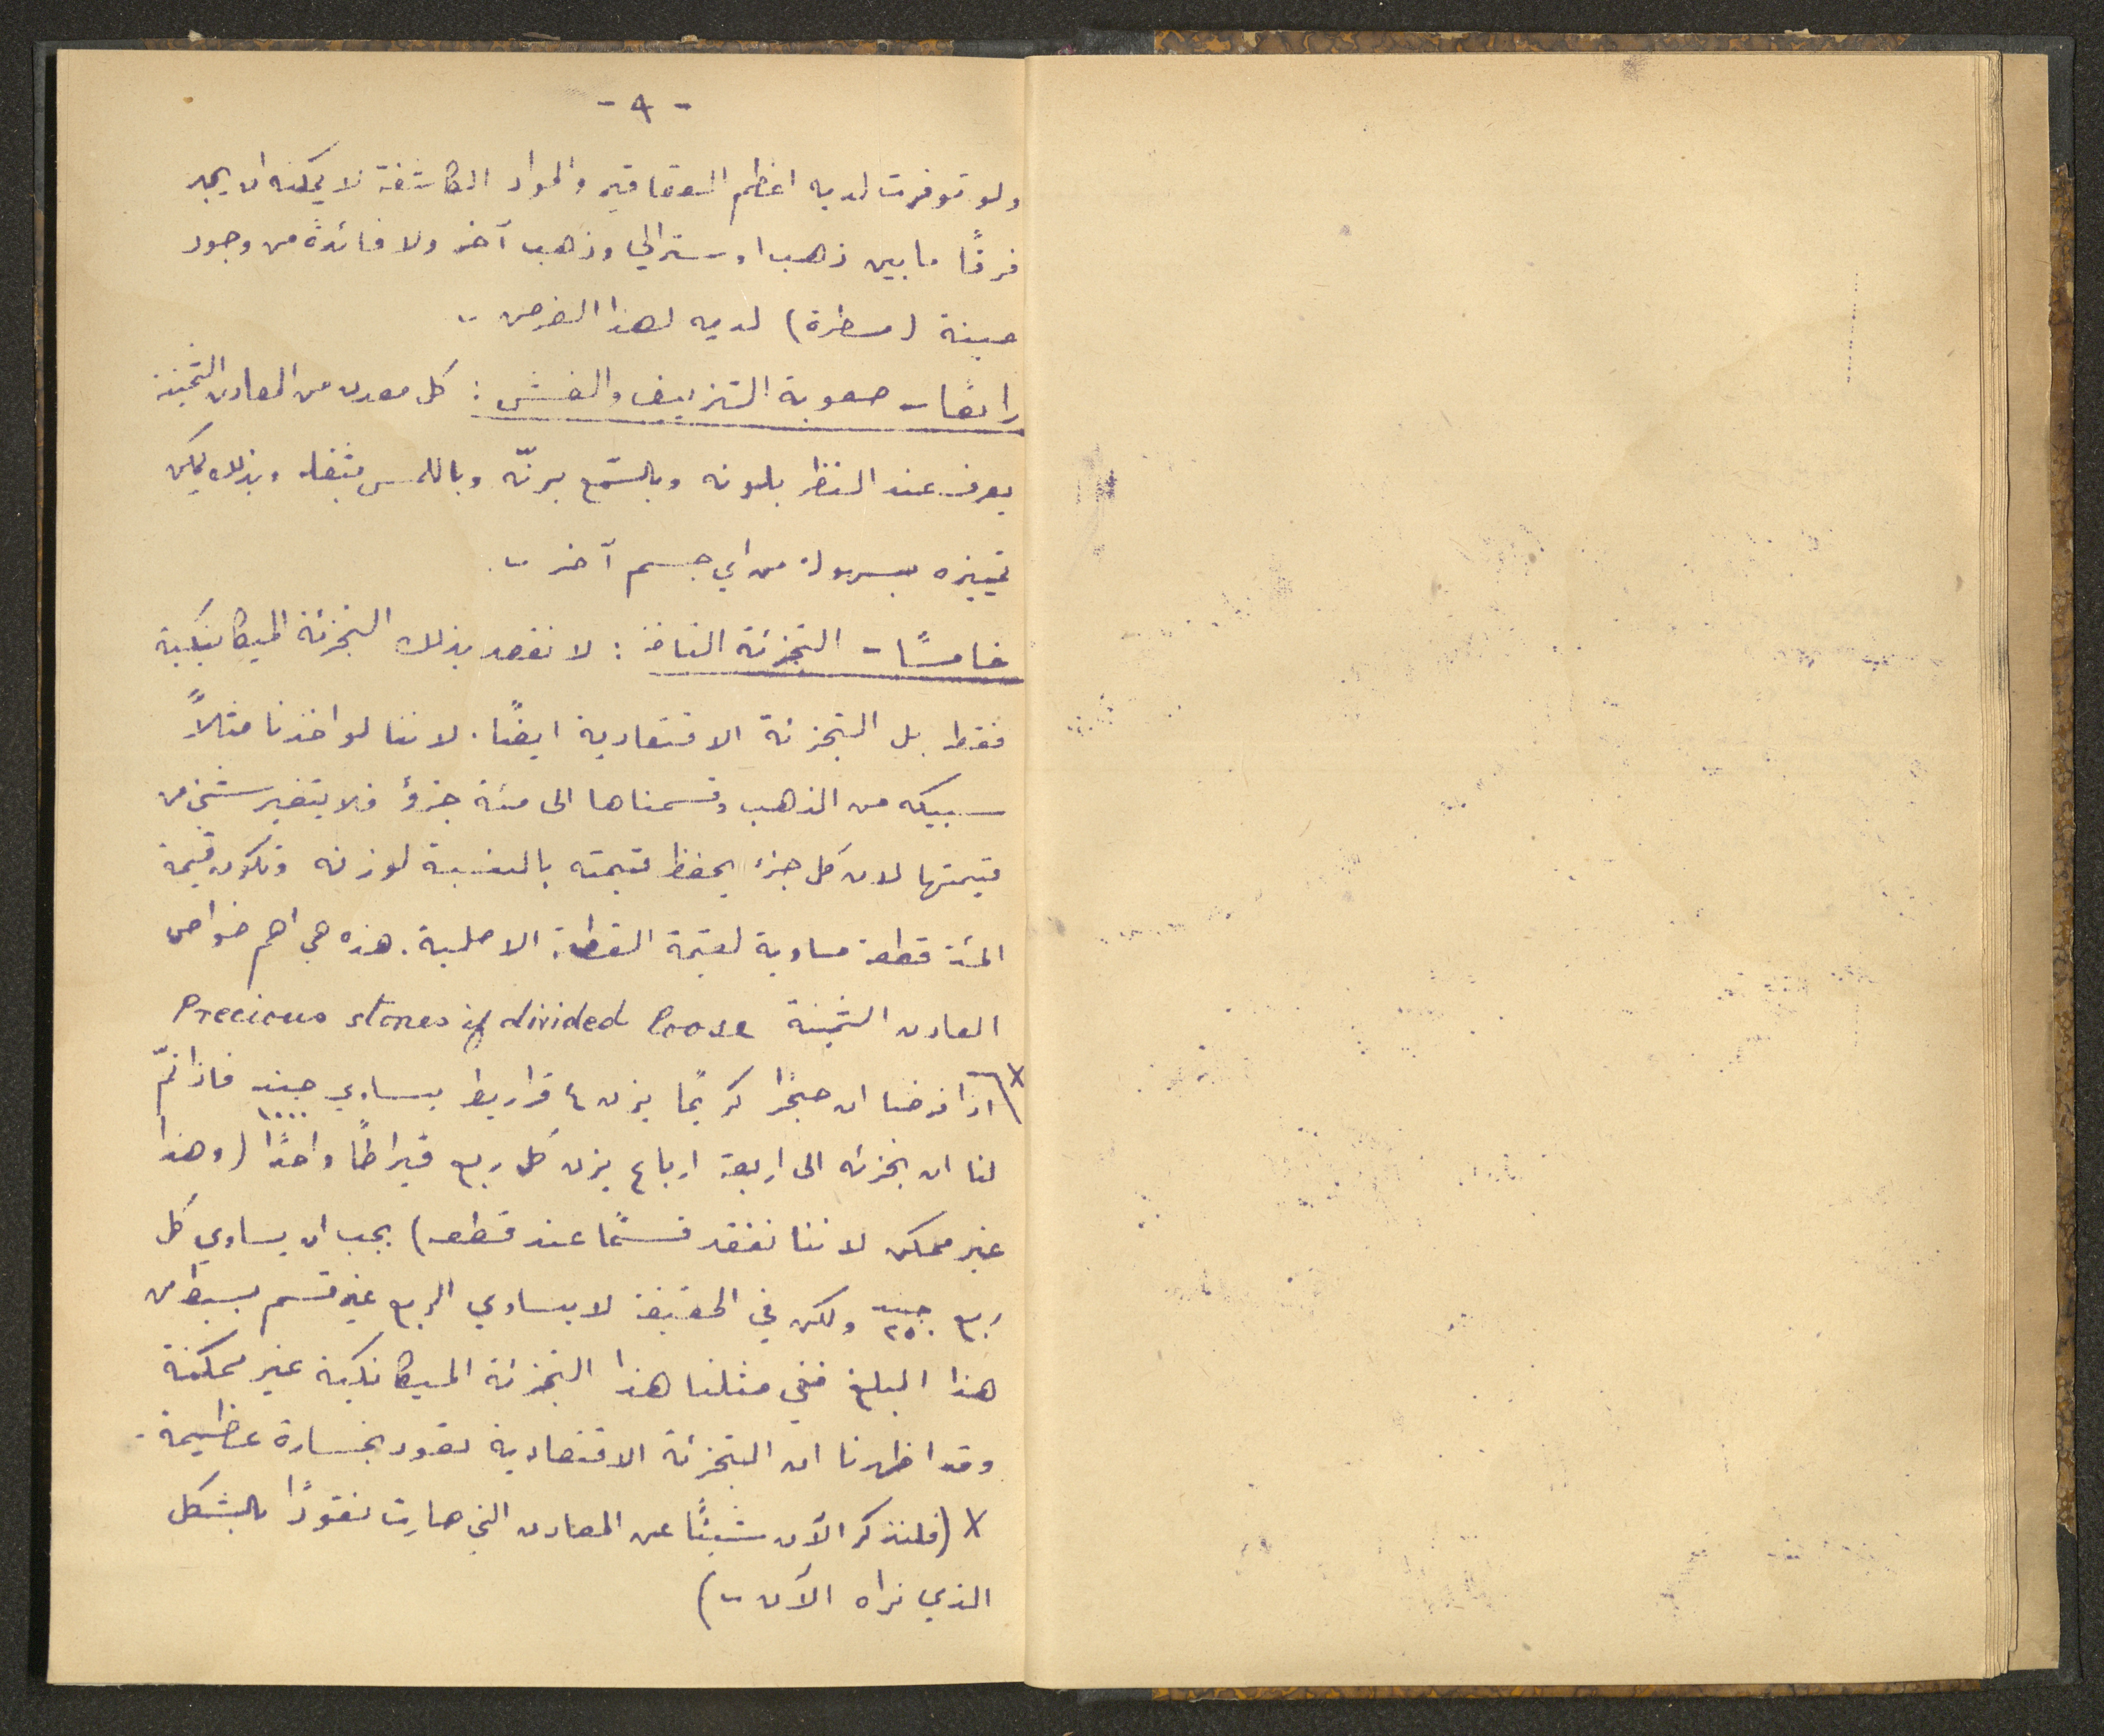 - ٩ -
ولو توفرت لديه اعظم العقاقير والمواد الكاشفة لا يمكنه ان يجد
فرقًا ما بين ذهب اوسترالي وذهب آخر ولا فائدة من وجود
عينة (مسطرة) لديه لهذا الغرض -
رابعًا - صعوبة التزييف والغش : كل معدن من المعادن الثمينة
يعرف عند النظر بلونه وبالسّمع برنّه وباللمس بثقله وبذلك يمكن
تمييزه بسهولة من اي جسم آخر -
خامسًا - التجزئة التامة : لا نقصد بذلك التجزئة الميكانيكية
فقط بل التجزئة الاقتصادية ايضًا . لاننا لو اخذنا مثلاً
سبيكه من الذهب وقسمناها الى مئة جزؤ فلا يتغير شئ من
قيمتها لان كل جزء يحفظ قيمته بالنسبة لوزنه وتكون قيمة
المئة قطعة مساوية لقيمة القطعة الاصلية . هذه هي اهم خواص
المعادن الثمينة Precious stones if divided loose
X اذا فرضنا ان حجرًا كريمًا يزن ٤ قراريط يساوي جنيه ١٠٠٠ فاذا تمّ
لنا ان نجزئه الى اربعة ارباع يزن كل ربع قيراطًا واحدًا (وهذا
غير ممكن لاننا نفقد قسمًا عند قطعه) يجب ان يساوي كل
ربع جنيه ٢٥٠ ولكن في الحقيقة لا يساوي الربع غير قسم بسيط من
هذا المبلغ ففي مثلنا هذا التجزئة الميكانكية غير ممكنة
وقد اظهرنا ان التجزئة الاقتصادية تعود بخسارة عظيمة .
X (فلنذكر الآن شيئًا عن المعادن التي صارت نقودًا بالشكل
الذي نراه الآن -)